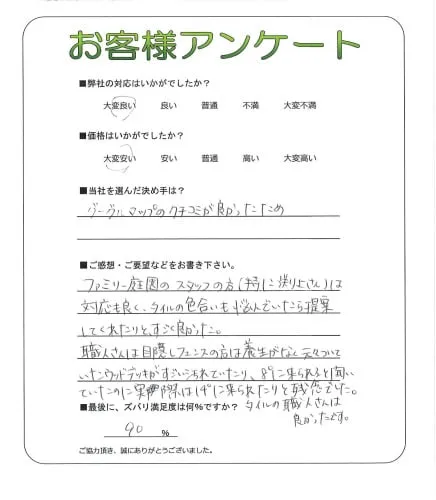 お客様アンケート
■弊社の対応はいかがでしたか？
大変良い 良い 普通 不満 大変不満
■価格はいかがでしたか？
大変安い 安い 普通 高い 大変高い
■当社を選んだ決め手は？
グーグルマップのクチコミが良かったため
■ご感想・ご要望などをお書き下さい。
ファミリー庭園のスタッフの方（特に
さん）は
対応も良く、タイルの色合いも悩んでいたら提案
してくれたりと、すごく良かった。
職人さんは目隠しフェンスの方は養生がなく元々ついて
いたウッドデッキがすごい
られていたり、8°に来られると聞い
ていたのに実際は
に来られたりと残念でした。
■最後に、ズバリ満足度は何％ですか？
タイルの職人さんは
良かったです。
90 ％
ご協力頂き、誠にありがとうございました。